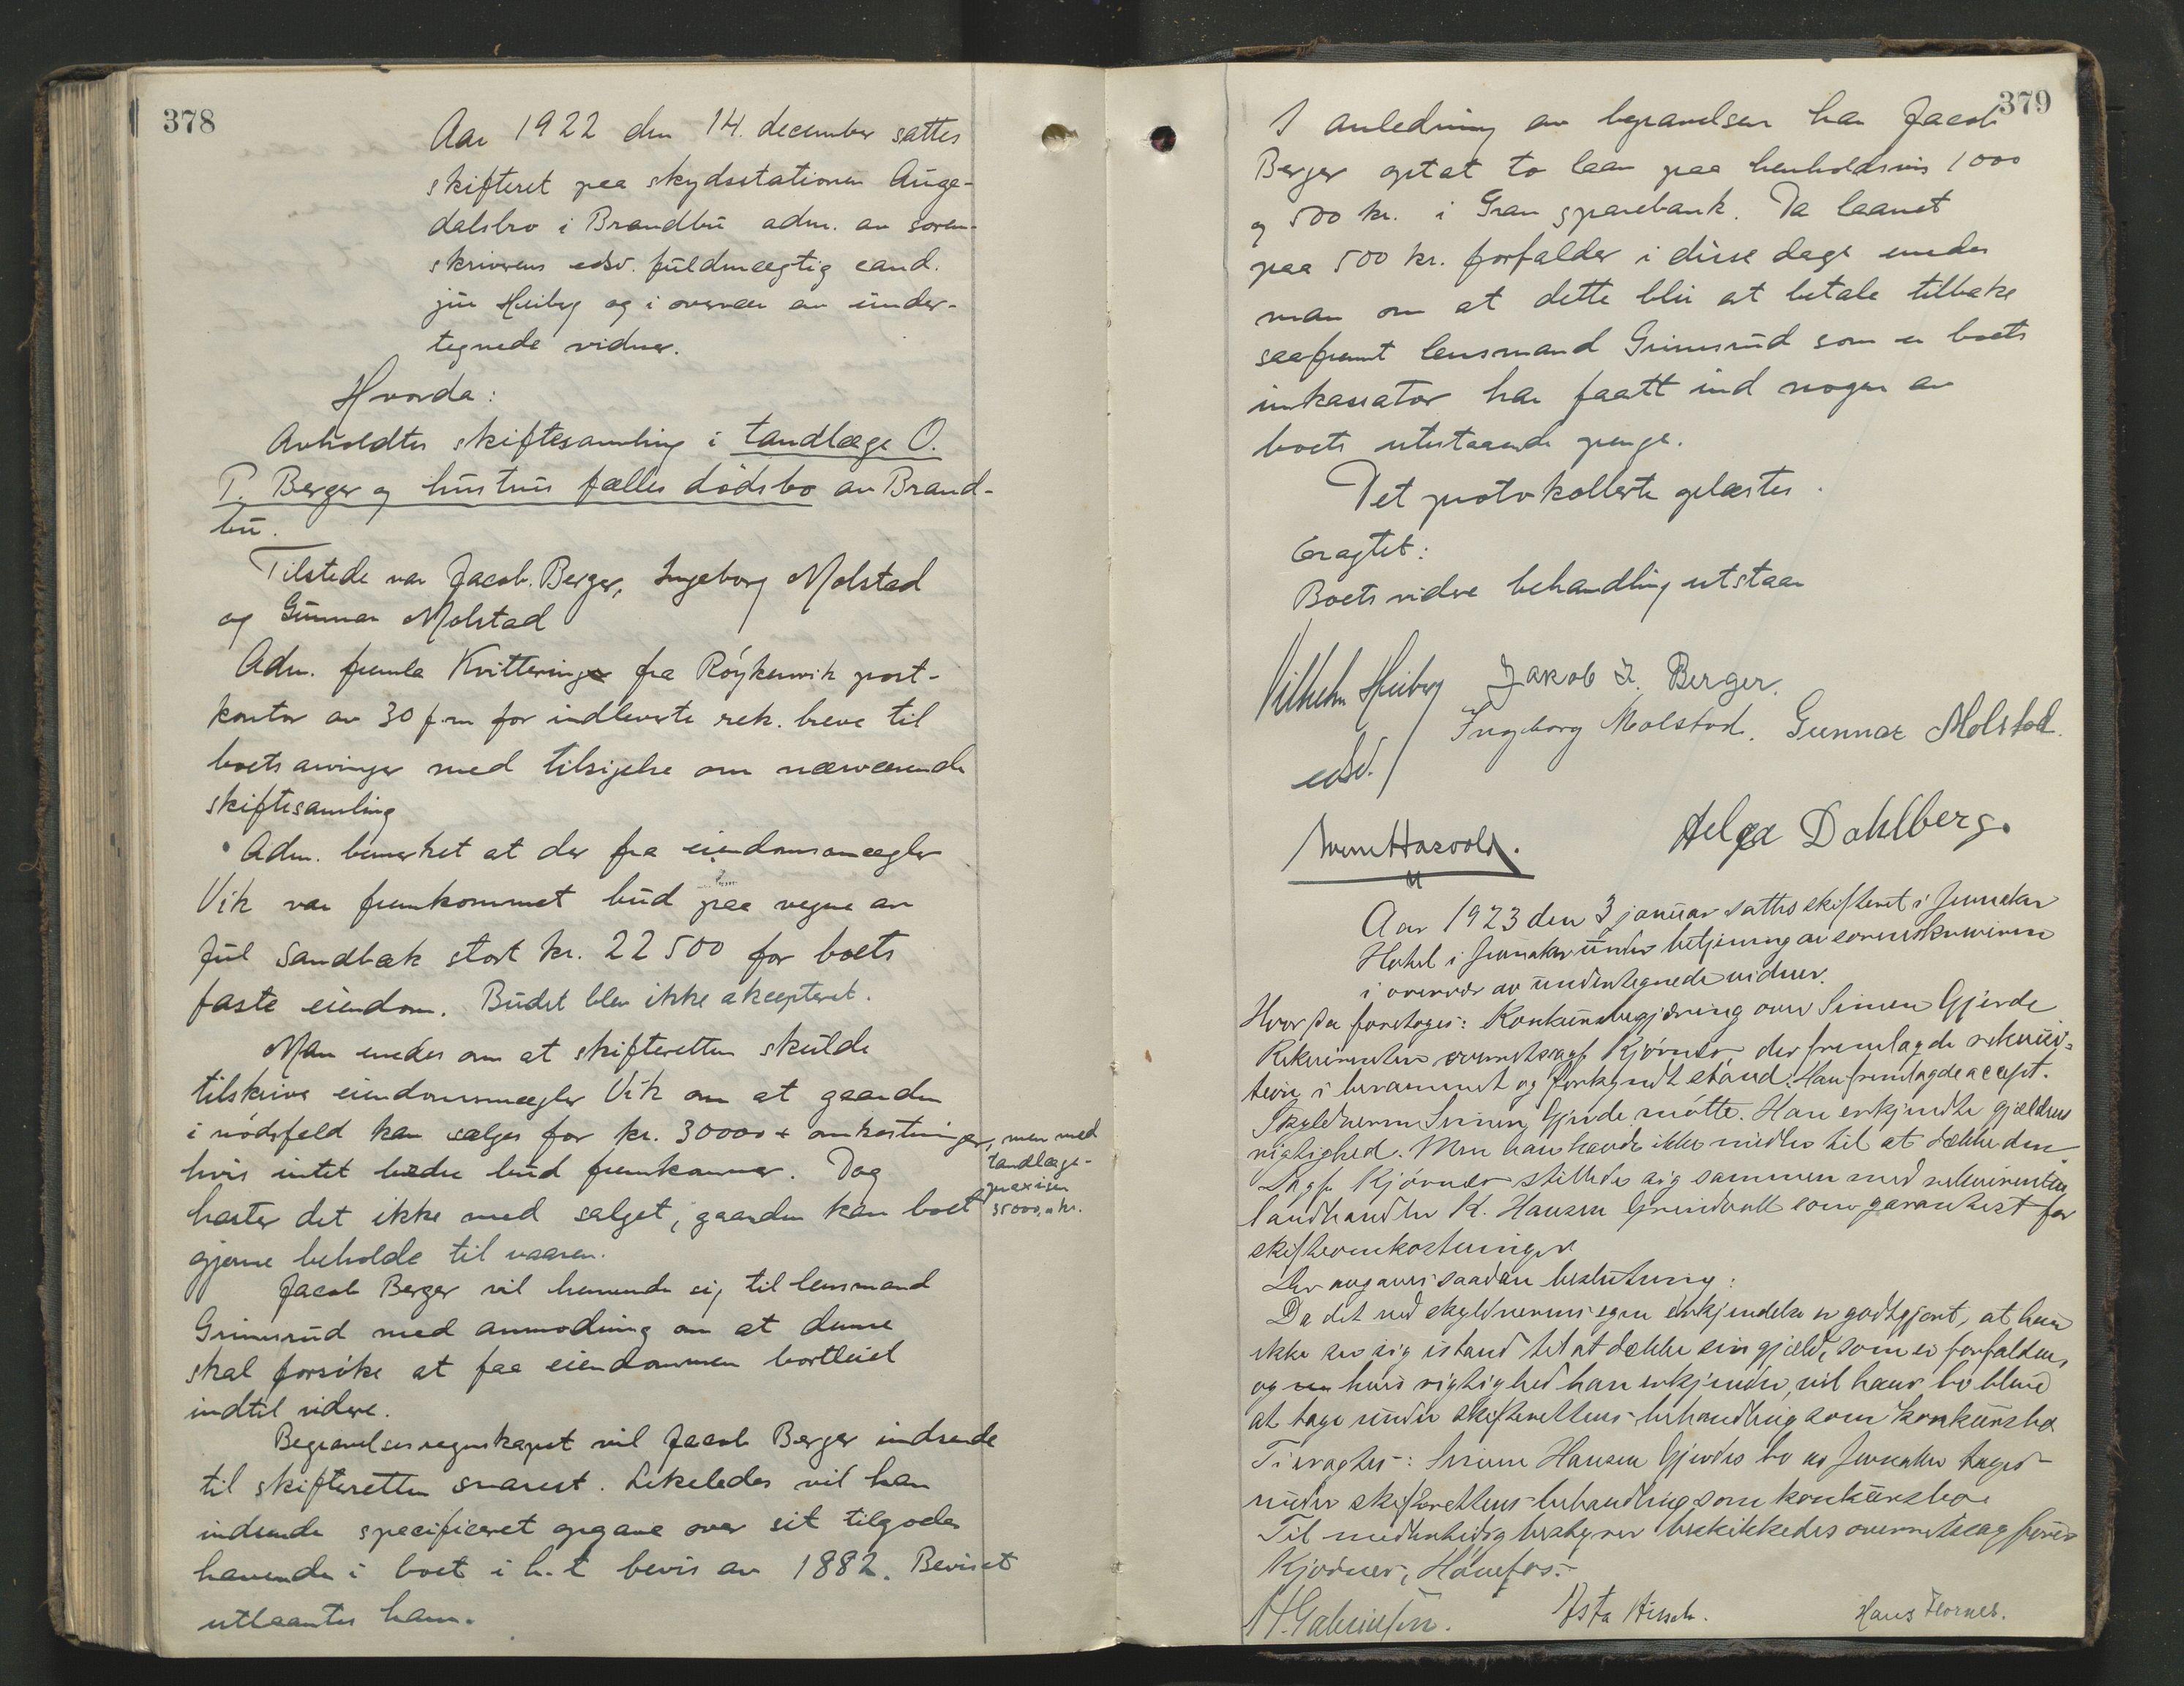 378
Aar 1922 den 14. december sattes
skifteret paa skydsstationen Auge-
dalsbro i Brandbu adm. av soren-
skriverens edsv. fuldmægtig cand.
jur Heiberg og i overvær av under-
tegnede vidner.
Hvorda:
Avholdtes skiftesamling i tandlæge O.
P. Berger og hustrus fælles dødsbo av Brand-
bu.
Tilstede var Jacob. Berger, Ingeborg Molstad
og Gunnar Molstad
Adm. fremla Kvittering fra Röykenvik post-
kontor av 30 f.m for indleverte rek. breve til
boets arvinger med tilsigelse om nærværende
skiftesamling
Adm. bemerket at der fra eiendomsmægler
Vik var fremkommet bud paa vegne av
Jul Sandbæk stort kr. 22500 for boets
faste eiendom. Budet blev ikke akcepteret.
Man enedes om at skifteretten skulde
tilskrive eiendomsmægler Vik om at gaarden
i nödsfeld kan sælges for kr. 30000 + omkostninger, men med
tandlæge-
praxisen
35000,0 kr.
hvis intet bedre bud fremkommer. Dog
haster det ikke med salget, gaarden kan boet
gjerne beholde til vaaren.
Jacob Berger vil henvende sig til lensmand
Grimsrud med anmodning om at denne
skal forsöke at faa eiendommen bortleiet
indtil videre.
Begravelsesregnskapet vil Jacob Berger indsende
til skifteretten snarest. Likeledes vil han
indsende specificeret opgave over sit tilgode-
havende i boet i h. t bevis av 1882. Beviset
utlaantes ham.
379
I anledning av begravelsen har Jacob
Berger optat to laan paa henholdsvis 1000
og 500 kr. i Gran sparebank. Da laanet
paa 500 kr. forfalder i disse dage enedes
man om at dette blir at betale tilbake
saafremt lensmand Grimsrud som er boets
inkassator har faatt ind nogen av
boets utestaaende penge.
Det protokollerte oplæstes.
Eragtet:
Boets videre behandling utstaar
Vilhelm Heiberg Jakob I. Berger.
edsv. Ingeborg Molstad. Gunnar Molstad.
Helga Dahlberg.
Aar 1923 den 3 januar sattes skifteret i Jevnaker
Hotel i Jevnaker under betjening av sorenskriveren
i overvær av undertegnede vidner.
Hvor da foretoges: Konkursbegjæring over Simen Gjerde
Rekvirenten overretssagf. Kjörner, der fremlagde rekvisi-
tion i berammet og forkyndt stand. Han fremlagde accept.
Skyldneren Simen Gjerde mötte. Han erkjendte gjældens
rigtighed. Men han havde ikke midler til at dække den.
Sagf. Kjörner stillede sig sammen med rekvirenten
landhandler K. Hansen Grindvoll som garantist for
skifteomkostninger
Der avgaves saadan beslutning:
Da det ved skyldnerens egen erkjendelse er godtgjort, at han
ikke ser sig istand til at dække sin gjæld, som er forfalden,
og hvis rigtighed han erkjender, vil hans bo blive
at tage under skifterettens behandling som konkursbo
Ti eragtes: Simen Hansen Gjerdes bo av Jevnaker tages
under skifterettens behandling som konkursbo.
Til midlertidig bestyrer beskikkedes overretssagförer
Kjörner, Hönefos.
Asta Hirsch. Hans Flornes.